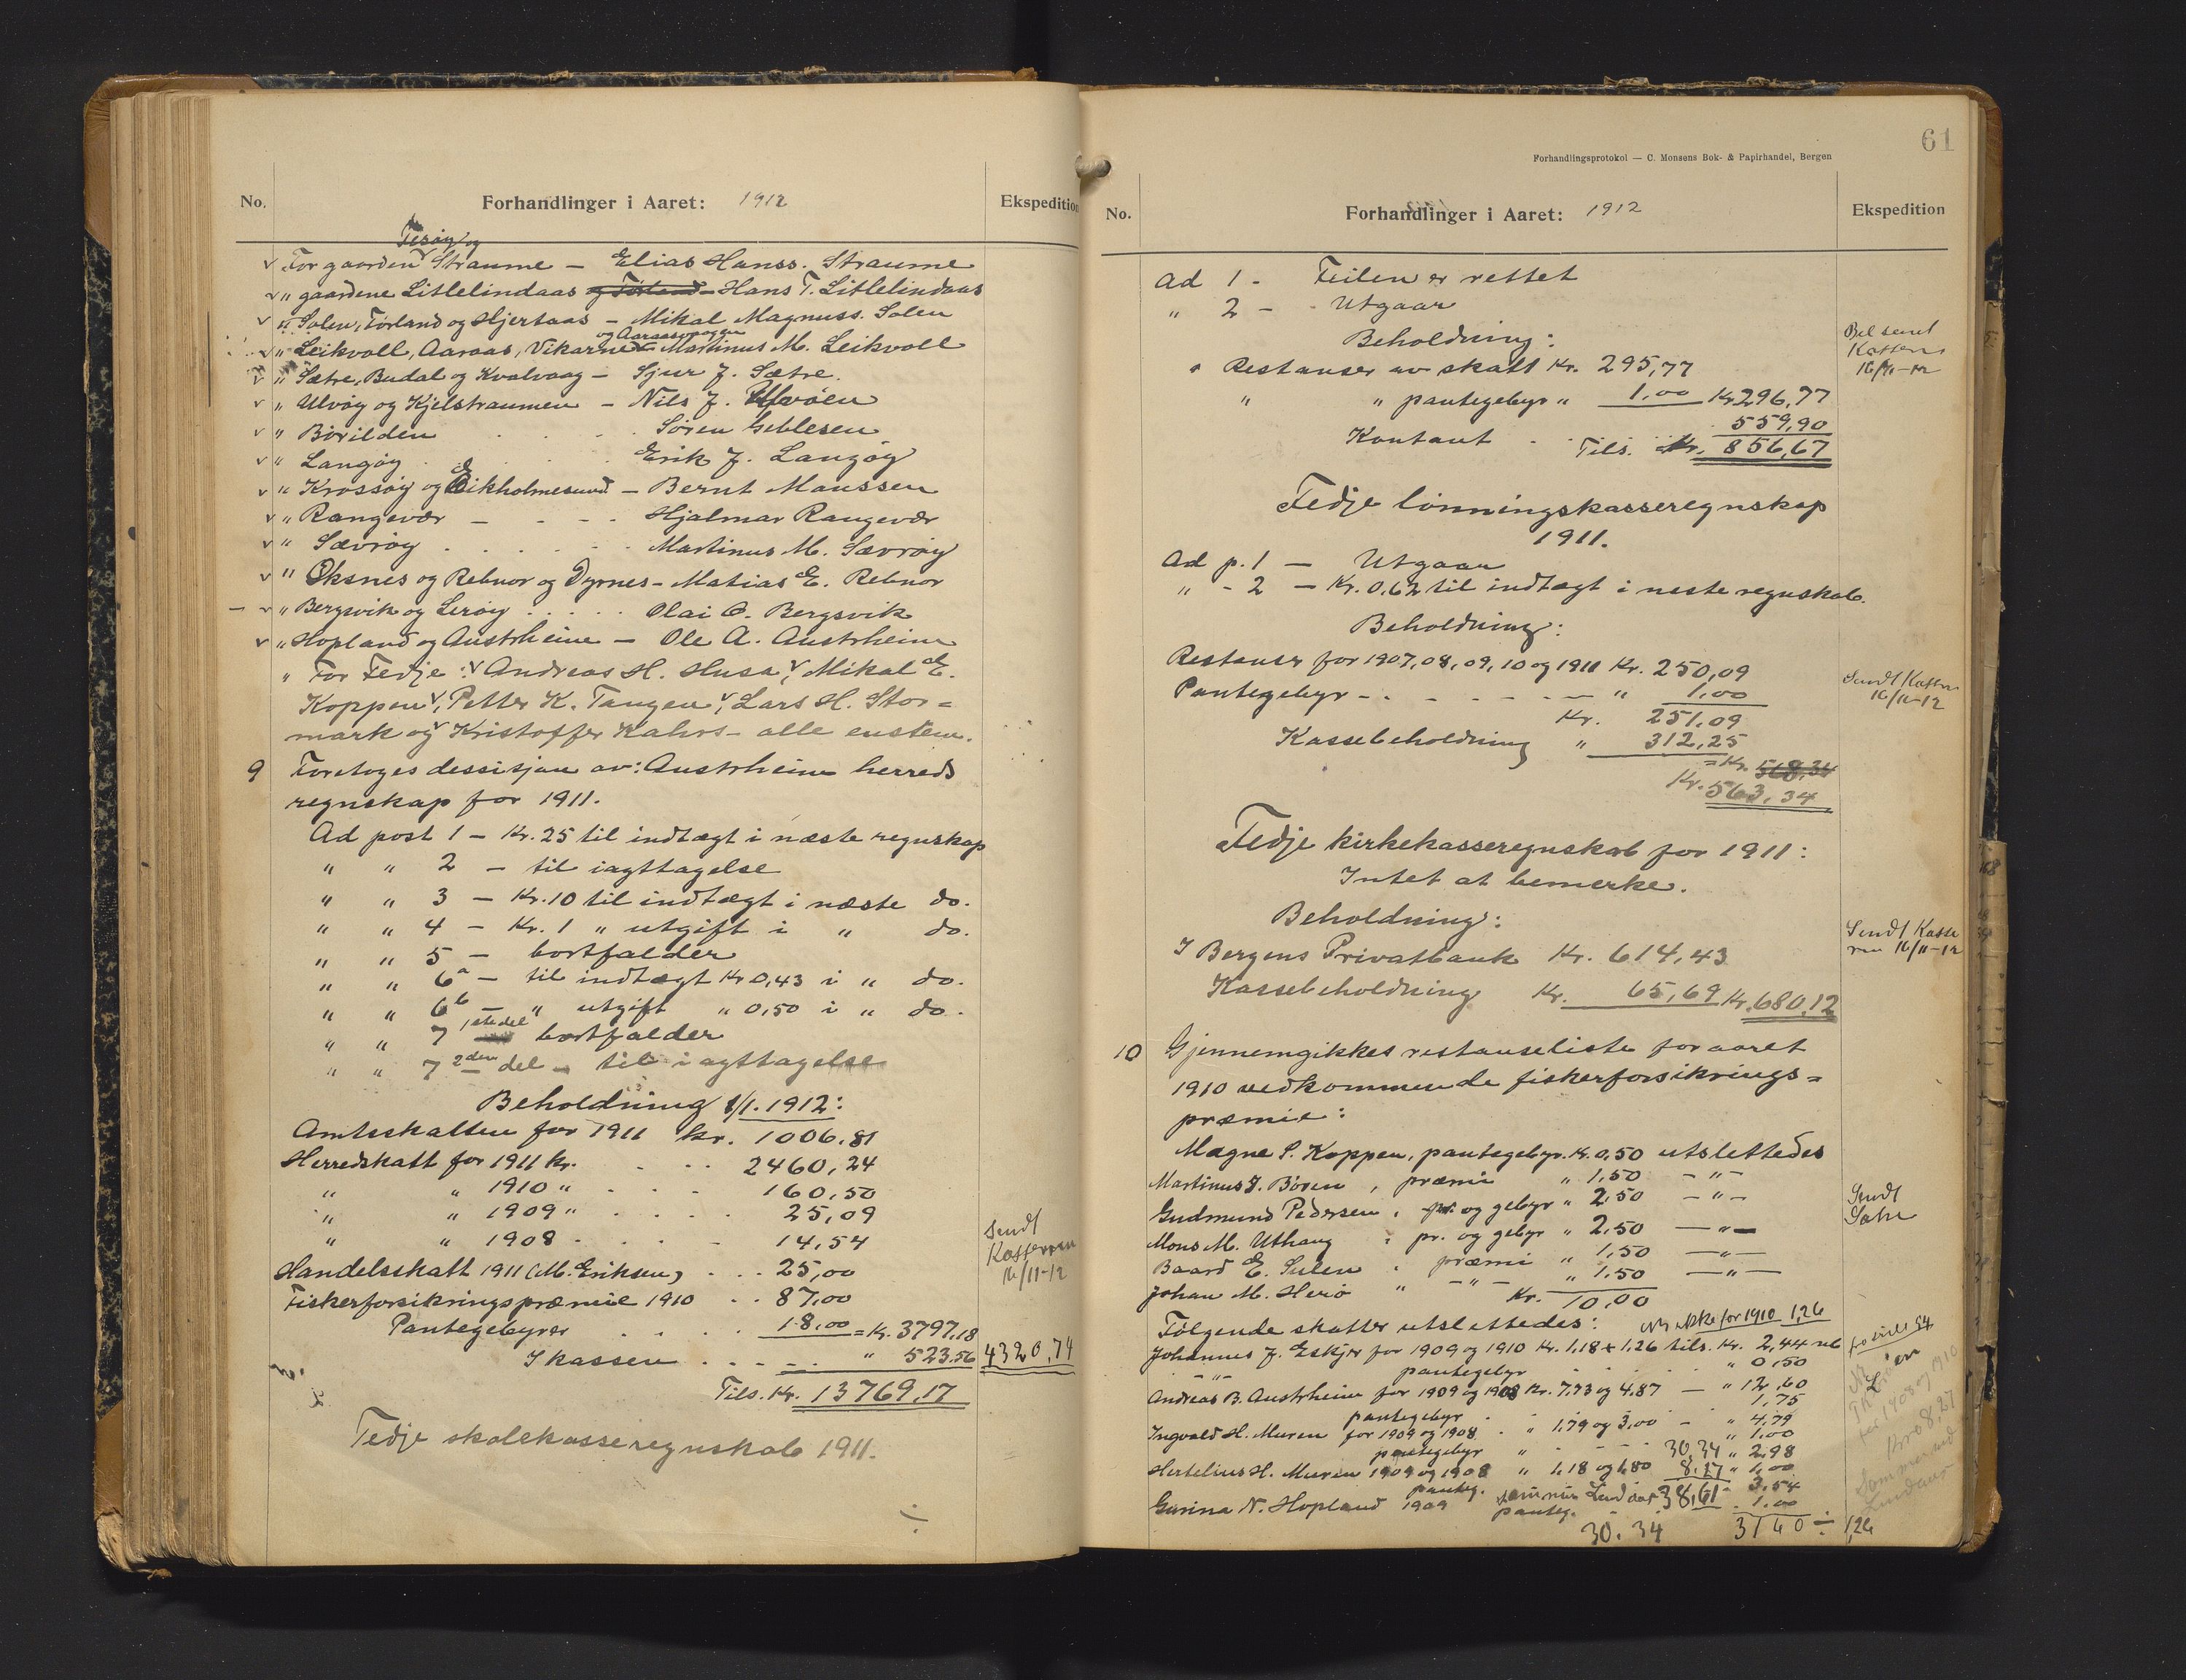 No. Forhandlinger i Aaret: 1912 Ekspedition
Fesøy og
For gaarden Straume – Elias Hanss. Straume
" gaardene Litlelindaas og Førland – Hans T. Litlelindaas
" Solen, Førland og Hjertaas – Mikal Magnuss. Solen
og Aaraasvaagen
" Leikvoll, Aaraas, Vikarne – Martinus M. Leikvoll
" Sætre, Budal og Kvalvaag – Sjur J. Sætre.
" Ulvøy og Kjelstraumen – Nils J. Ulvøen
" Børilden . . . Søren Geblesen
" Langøy . . . Erik J. Langøy
" Krossøy og Eikholmesund – Bernt Monssen
" Rangevær – – – Hjalmar Rangevær
" Sævrøy . . . . . Martinus M. Sævrøy
" Oksnes og Rebnor og Dyrnes – Matias E. Rebnor
" Bergsvik og Lerøy . . . . . Olai O. Bergsvik
" Hopland og Austrheim – Ole A. Austrheim
" For Fedje: Andreas H. Husa, Mikal E.
Koppen, Petter K. Tangen, Lars H. Stor=
mark og Kristoffer Kahrs – alle enstem.
9 Foretoges dessisjon av: Austrheim herreds
regnskap for 1911.
Ad post 1 – Kr. 25 til indtægt i næste regnskap
" " 2 – til iagttagelse
" " 3 – Kr. 10 til indtægt i næste do.
" " 4 – Kr. 1 " utgift i " do.
" " 5 – bortfalder
" " 6a – til indtægt Kr 0,43 i " do.
" " 6b – " utgift " 0,50 i " do.
" " 7 1ste del bortfalder
" " 7 2den del – til iagttagelse
Beholdning 1/1. 1912:
Amtsskatten for 1911 kr. 1006,81
Herredskatt for 1911 kr. . . . 2460,24
" " 1910 " . . . 160,50
" " 1909 " . . . . 25,09
" " 1908 . . . – 14,54
Handelsskatt 1911 (M. Eriksen) . . . 25,00
Fiskerforsikringspræmie 1910 . . 87,00
Pantegebyrer . . . . 18,00 = Kr. 3797,18
I kassen . . . – – . . " 523.56 4320,74
Tils. Kr. 13769,17
Sendt
Kasseren
16/11-12
Fedje skolekasseregnskab 1911.
61
Forhandlingsprotokol — C. Monsens Bok- & Papirhandel, Bergen
No. Forhandlinger i Aaret: 1912 Ekspedition
Ad 1 - Feilen er rettet
" 2 – . Utgaar
Beholdning:
" Restanser av skatt Kr. 295,77
" " pantegebyr " 1,00 Kr 296,77
Kontant . . . 559,90
Tils. Kr. 856,67
Kassern
16/11-12
Fedje lønningskasseregnskap
1911.
Ad p. 1 – Utgaar
" - 2 – Kr. 0,62 til indtægt i neste regnskab.
Beholdning:
Restanser for 1907, 08, 09, 10 og 1911 Kr. 250,09
Pantegebyr – . – – – – " 1,00
Kr. 251,09
Kassebeholdning " 312,25
= Kr. 568,34
Kr. 563,34
Sendt Kassern
16/11-12
Fedje kirkekasseregnskab for 1911:
Intet at bemerke.
Beholdning:
I Bergens Privatbank Kr. 614,43
Kassebeholdning Kr. 65,69 Kr. 680,12
Sendt Kasse
ren 16/11-12
10 Gjennemgikkes restanseliste for aaret
1910 vedkommende fiskerforsikrings=
præmie:
Magne S. Koppen, pantegebyr Kr. 0,50 utslettedes
Martinus J. Børen , præmie " 1,50 – " –
Gudmund Pedersen , pr. og gebyr " 2,50 – " –
Mons M. Uthaug , pr. og gebyr " 2,50 – " –
Baard E. Sulen , præmie " 1,50 – " –
Johan M. Herø " – " – " 1,50 – " –
Kr. 10,00
Sendt
Følgende skatter utslettedes: ikke for 1910 1,26
Johannes J. Eskjer for 1909 og 1910 Kr. 1,18 + 1,26 tils. Kr. 2,44
– " – pantegebyr " 0,50
Andreas B. Austrheim for 1909 og 1908 Kr. 7,73 og 4,87 – " 12,60
pantegebyr 1,75
Ingvald H. Muren for 1909 og 1908 . " 1,79 og 3,00 – " 4,79
pantegebyr " 1,00
Hertelius H. Muren 1909 og 1908 " 1,18 og 1,80 30,34 " 2,98
panteg. 8,27 " 1,00
Gurina N. Hopland 1909 Lindaas 38,61 3,54
panteg. 1,00
30.34 3140 ÷ 1,26
for 1908 og 1910
Kr 8,27